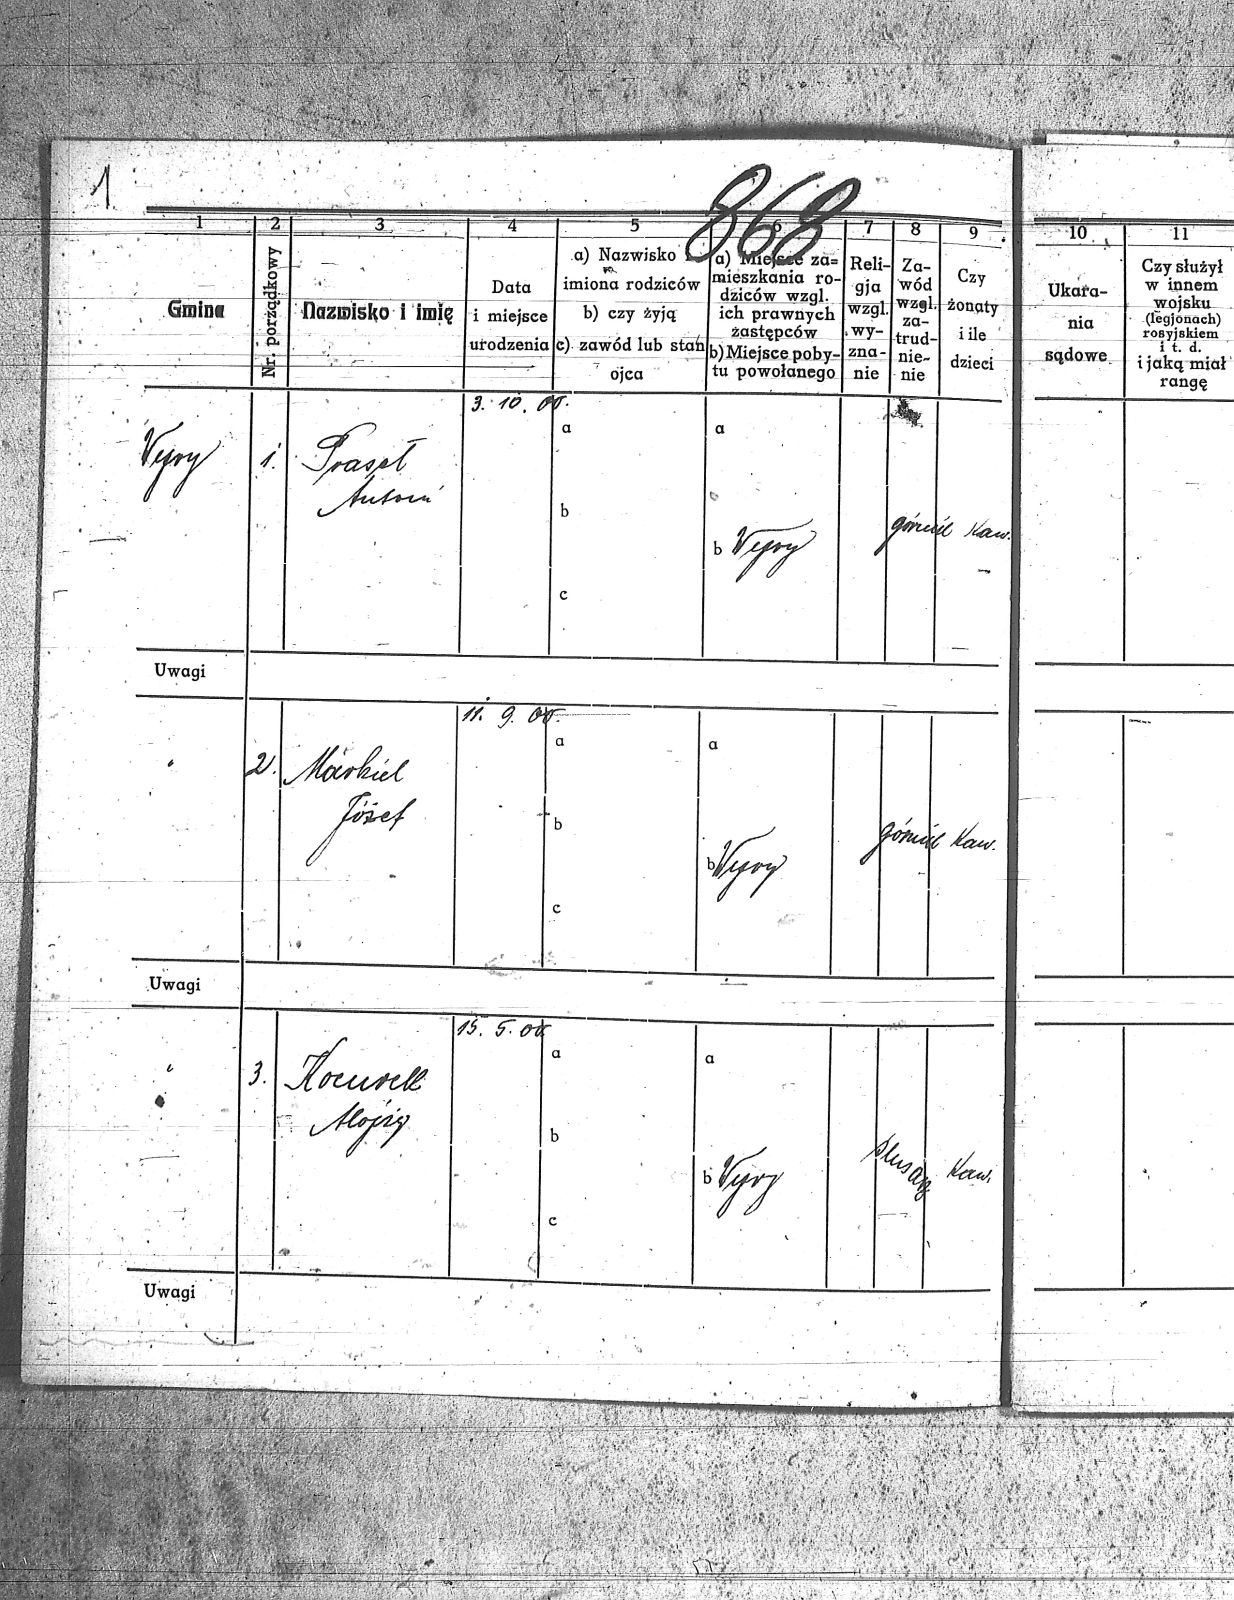 1.
868
1 2 3 4 5 6 7 8 9 10 11
Gmina
Nr. porządkowy
Nazwisko i imię
Data
i miejsce
urodzenia
a) Nazwisko i
imiona rodziców
b) czy żyją
c) zawód lub stan
ojca
a) Miejsce za=
mieszkania ro-
dziców wzgl.
ich prawnych
żastępców
b) Miejsce poby-
tu powołanego
Reli-
gja
wzgl.
wy-
zna-
nie
Za-
wód
wzgl.
za-
trud-
nie-
nie
Czy
żonaty
i ile
dzieci
Ukara-
nia
sądowe
Czy służył
w innem
wojsku
(legjonach)
rosyjskiem
i t. d.
i jaką miał
rangę
3. 10. 00.
a a
Wyry 1.
Antoni
b
b Wyry górnik Kaw.
c
Uwagi
11. 9. 00.
a a
" 2. Markiel
Józef
b
b Wyry górnik Kaw.
c
Uwagi
15. 5. 00
a a
" 3. Kocurek
Alojzy
b
b Wyry ślusarz Kaw.
c
Uwagi